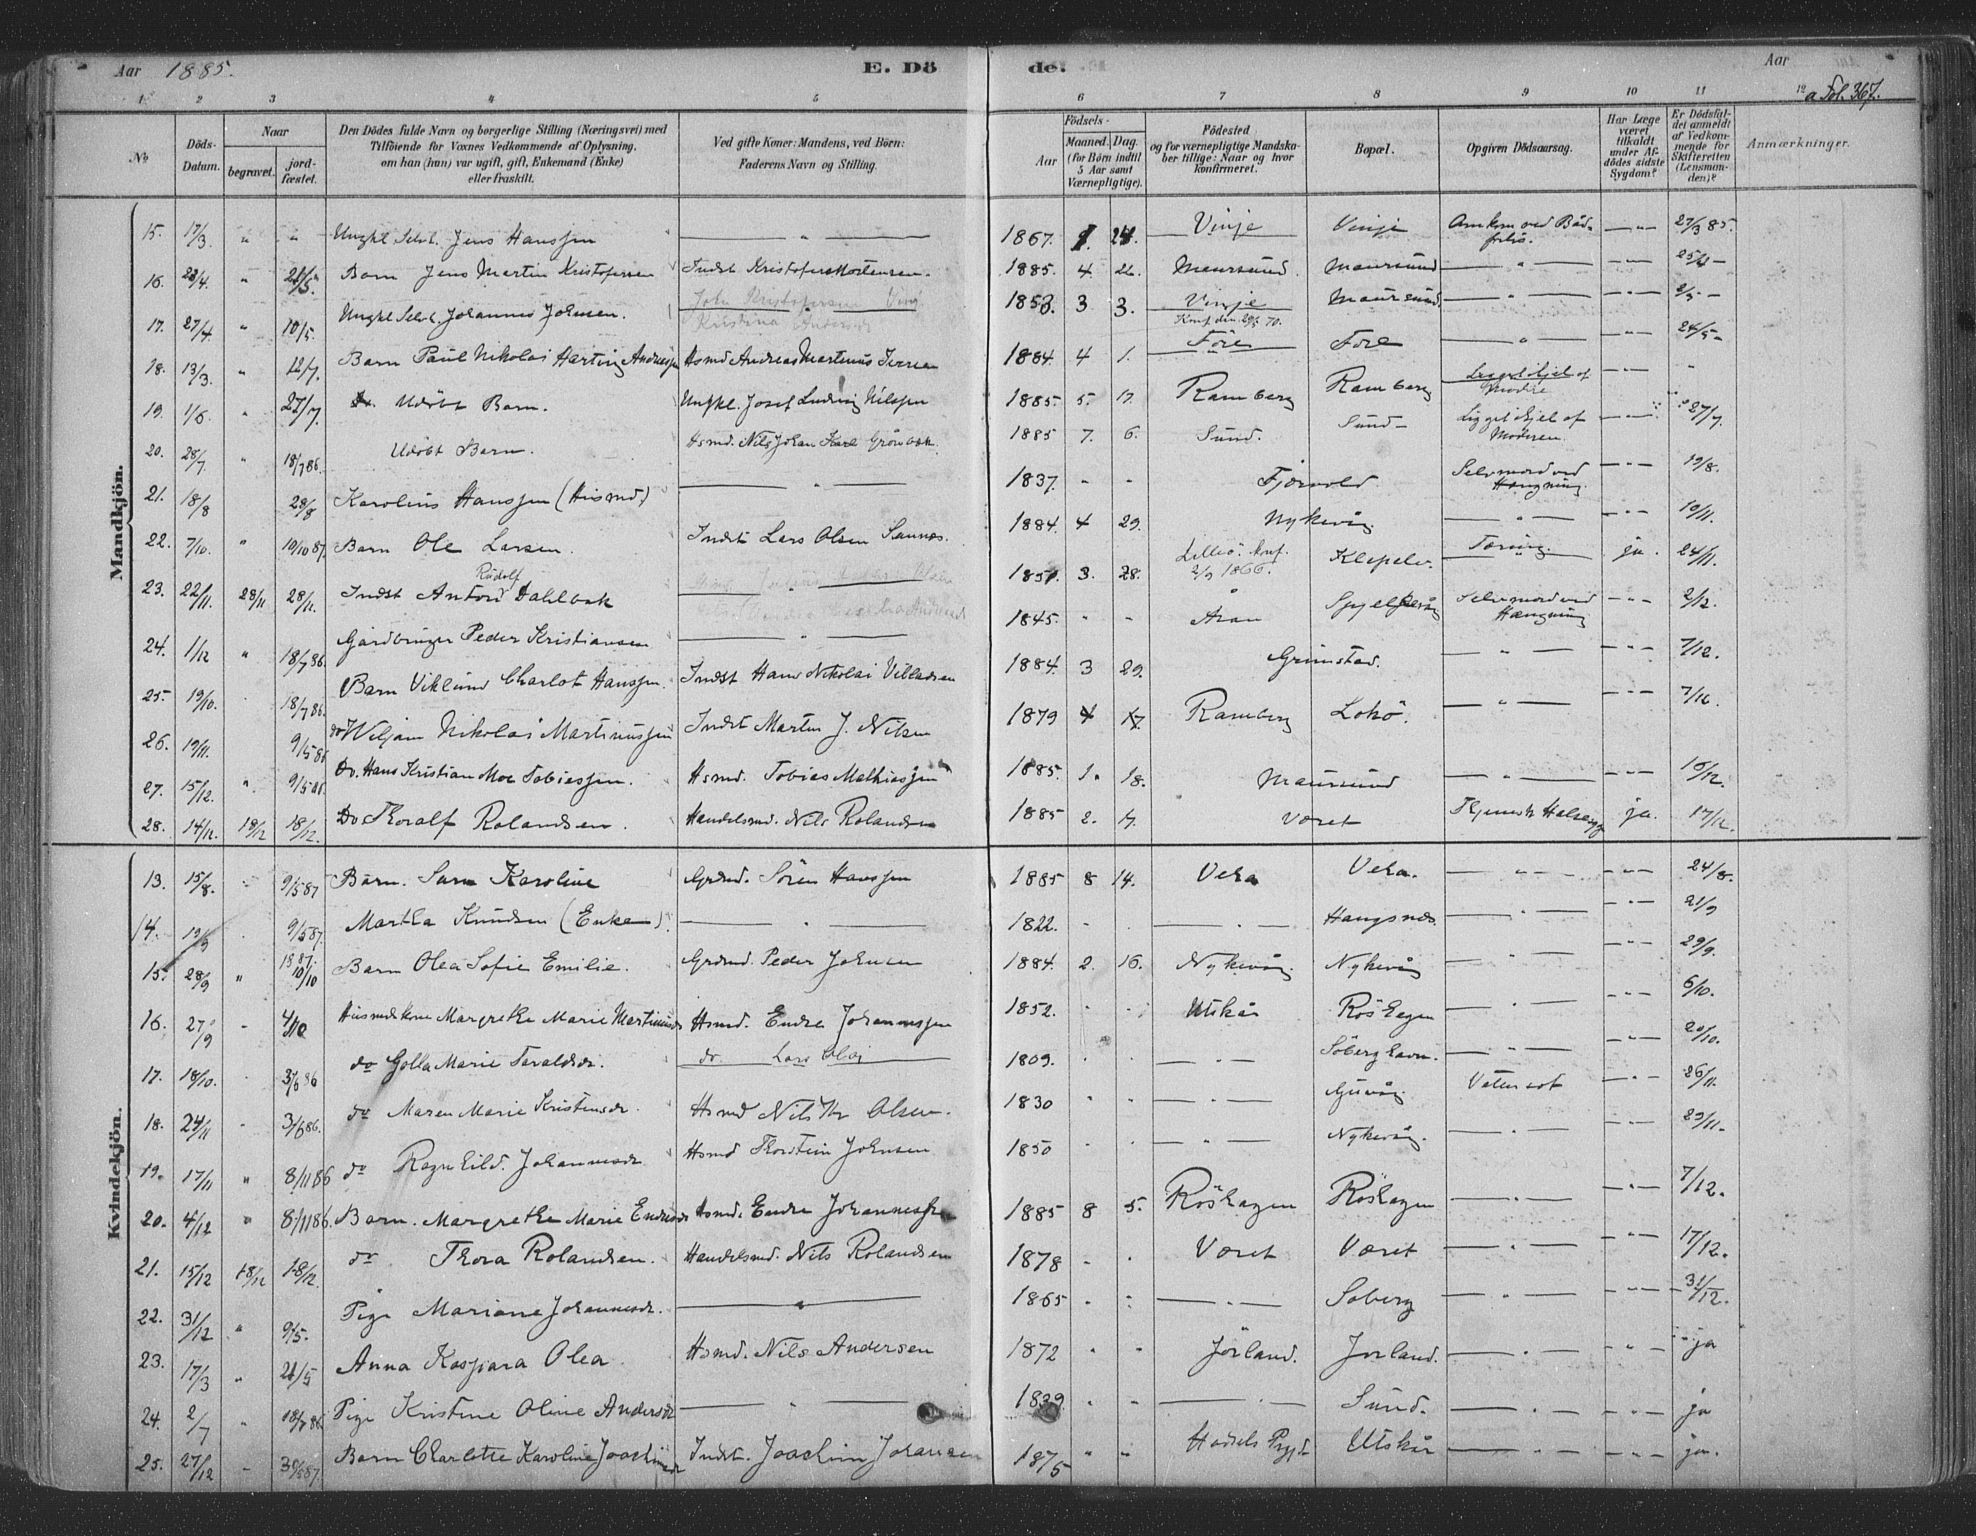 Aar 1885.
E. Dö
de.
Aar
a Fol. 367.
1 2 3 4 5 6 7 8 9 10 11 12
No
Döds-Datum.
Naar
begravet.
jord-fæstet.
Den Dödes fulde Navn og borgerlige Stilling (Næringsvei) med
Tilföiende for Voxnes Vedkommende af Oplysning,
om han (hun) var ugift, gift, Enkemand (Enke)
eller fraskilt.
Ved gifte Koner: Mandens, ved Börn:
Faderens Navn og Stilling.
Födsels-
Aar
Maaned. Dag.
(for Börn indtil
5 Aar samt
Værnepligtige).
Födested
og for værnepligtige Mandska-
ber tillige: Naar og hvor
konfirmeret.
Bopæl.
Opgiven Dödsaarsag.
Har Læge
været
tilkaldt
under Af-
dödes sidste
Sygdom?
Er Dödsfal-
det anmeldt
af Vedkom-
mende for
Skifteretten
(Lensman-
den)?
Anmærkninger.
Mandkjön.
15. 17/3. " " Ungkl Selvst. Jens Hanssen — " — 1867. 24. Vinje Vinje Omkom ved Baadforlis. — " — 27/3 85.
16. 23/4. " Barn Jens Martin Kristofersen Indst Kristofer Mortensen. 1885. 4 Maursund. Maursund — " — 25/4 —
17. 27/4 " 10/5. Ungkl Selvst Johannes Johnsen. 1853 3 3. Vinje Maursund — " —
18. 13/3. " 12/7. Barn Paul Nikolai Hartvig Andreassen Hsmd Andreas Martinus Iversen 1884. 4 1. Före Fore — " — 24/5 —
19. 1/6. " 27/7. Udöbt Barn. Ungkl. Josef Ludvig Nilssen 1885. 5. 17. Ramberg Ramberg Ligget ihjel af Modre — " — "
20. 28/7. " 18/7 86. Udöbt Barn. Hsmd. Nils Johan Karl Grönbæk. 1885 7. 6. Sund. Sund — Ligget ihjel af Moderen. — " — 27/7.
21. 18/8 28/8 Karolius Hanssen (Husmd.) — " — 1837. " " Fjærvold Selvmord ved Hængning. — " — 19/8.
22. 7/10. " 19/10 87. Barn Ole Larsen. Indst Lars Olsen Sannes. 1884. 4 29. Nykvåg — " — — " — 10/11.
23. 22/11. 28/11 28/11. Indst Anton Rudolf Dahlbak — " — 1851. 3. 28. Lilleö. Konf. 2/9 1866. Klepelv. Tæring. ja. 24/11.
24. 1/12 " 18/7 86. Gårdbruger Peder Kristiansen — " — 1845. " " Åran Selvmord ved Hængning — " — 2/12.
25. 19/10. 18/7 86. Barn Viklund Charlot Hanssen. Indst Hans Nikolai Villadsen 1884. 3 29. Grimstad. — " — — " — 7/12.
26. 19/11. 9/5 86 do Viljam Nikolai Martinussen Indst Martin J. Nilsen 1879 4 17. Ramberg Lokö. — " — — " —
27. 15/12. " 9/5 86. Do. Hans Kristian Moe Tobiassen. Hsmd. Tobias Mathiassen 1885. 1. 18. Maursund — " — — " — 16/12.
28. 14/12. 18/12 18/12. Do Thoralf Rolandsen. Handelsmd. Nils Rolandsen 1885 2. 17. Været ja. 17/12.
Kvindekjön.
13. 15/8. 9/5 87 Barn. Sara Karoline Grdmd. Sören Hanssen 1885 8 14. — " — — " — 24/8.
14. 19/9 9/5 87. Martha Knudsen (Enke) — " — 1822. — " — Haugsnæs. — " — — " — 21/9
15. 28/9 " 1887. 10/10 Barn Olea Sofie Emilie. Grdmd. Peder Johnsen 1884. 2. 16. Nykvåg. Nykvåg — " — — " — 29/9.
16. 27/9 4/10 Husmdskone Margrethe Marie Martinusdr Hsmd. Endre Johannessen 1852. Utskår Röshagen — " — — " — 6/10.
17. 18/10. 3/6 86 do Golla Marie Taraldsdr. do Lars Olai 1809. — " — Söberghavn. — " — — " — 20/10.
18. 24/11 3/6 86. do Maren Marie Kristensdr. Hsmd Nils Kr Olsen. 1830 — " — Guvåg. Vattersot — " — 26/11.
19. 17/11 " 8/11 86 do Ragnhild. Johannesdr. Hsmd Thorstein Johnsen 1850 — " — Nykvåg. — " — — " — 29/11.
20. 4/12 " 8/11 86. Barn. Margrethe Marie Endresdr Hsmd. Endre Johannessen 1885 8 5. Röshagen Röshagen — " — — " — 7/12.
21. 15/12 18/12 18/12. do Thora Rolandsen. Handelsmd. Nils Rolandsen 1878 Været Været — " — — " — 17/12.
22. 31/12 " 9/5. Pige Mariane Johannesdr. — " — 1865 — " — Soberg — " — — " — 31/12.
23. 17/3 " 21/5 Anna Kaspara Olea. Hsmd. Nils Andersen 1872 " " Jörland. Jorland. — " — — " — ja
24. 2/7 " 18/7 86 Pige Kristine Oline Andersdr — " — 1839 " " — " — Sund. — " — — " — ja
25. 27/12 Barn Charlotte Karoline Joachimsdr Indst. Joachim Johansen 1875 " " Hadsels Prgd. Utskår — " — — " — ja.